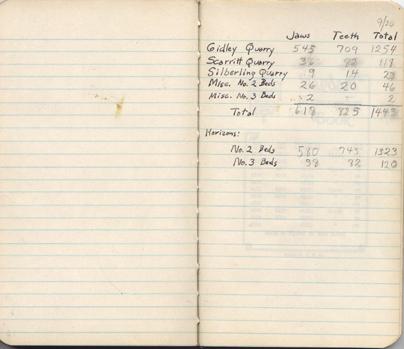 9/20
Jaws Teeth Total
Gidley Quarry 545 709 1254
Scarritt Quarry 36 82 118
Silberling Quarry 9 14 23
Misc. No. 2 Beds 26 20 46
Misc. No. 3 Beds 2 2
Total 618 825 1443
Horizons:
No. 2 Beds 580 743 1323
No. 3 Beds 38 82 120